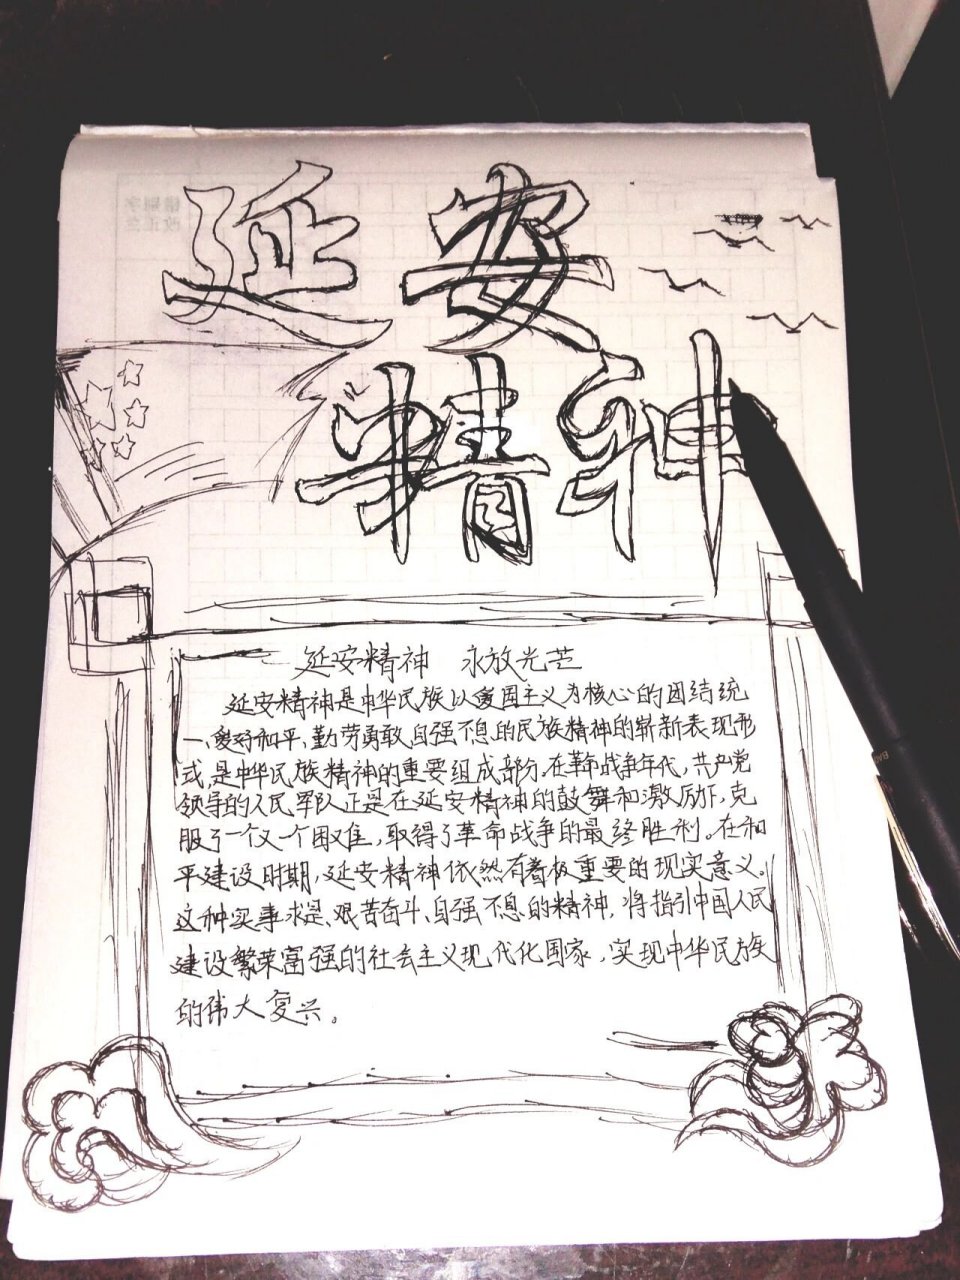 延安
精神
延安精神 永放光芒
延安精神是中华民族以爱国主义为核心的团结统
一、爱好和平、勤劳勇敢、自强不息的民族精神的崭新表现形
式,是中华民族精神的重要组成部分。在革命战争年代,共产党
领导的人民军队正是在延安精神的鼓舞和激励下,克
服了一个又一个困难,取得了革命战争的最终胜利。在和
平建设时期,延安精神依然有着极重要的现实意义。
这种实事求是、艰苦奋斗、自强不息的精神,将指引中国人民
建设繁荣富强的社会主义现代化国家,实现中华民族
的伟大复兴。